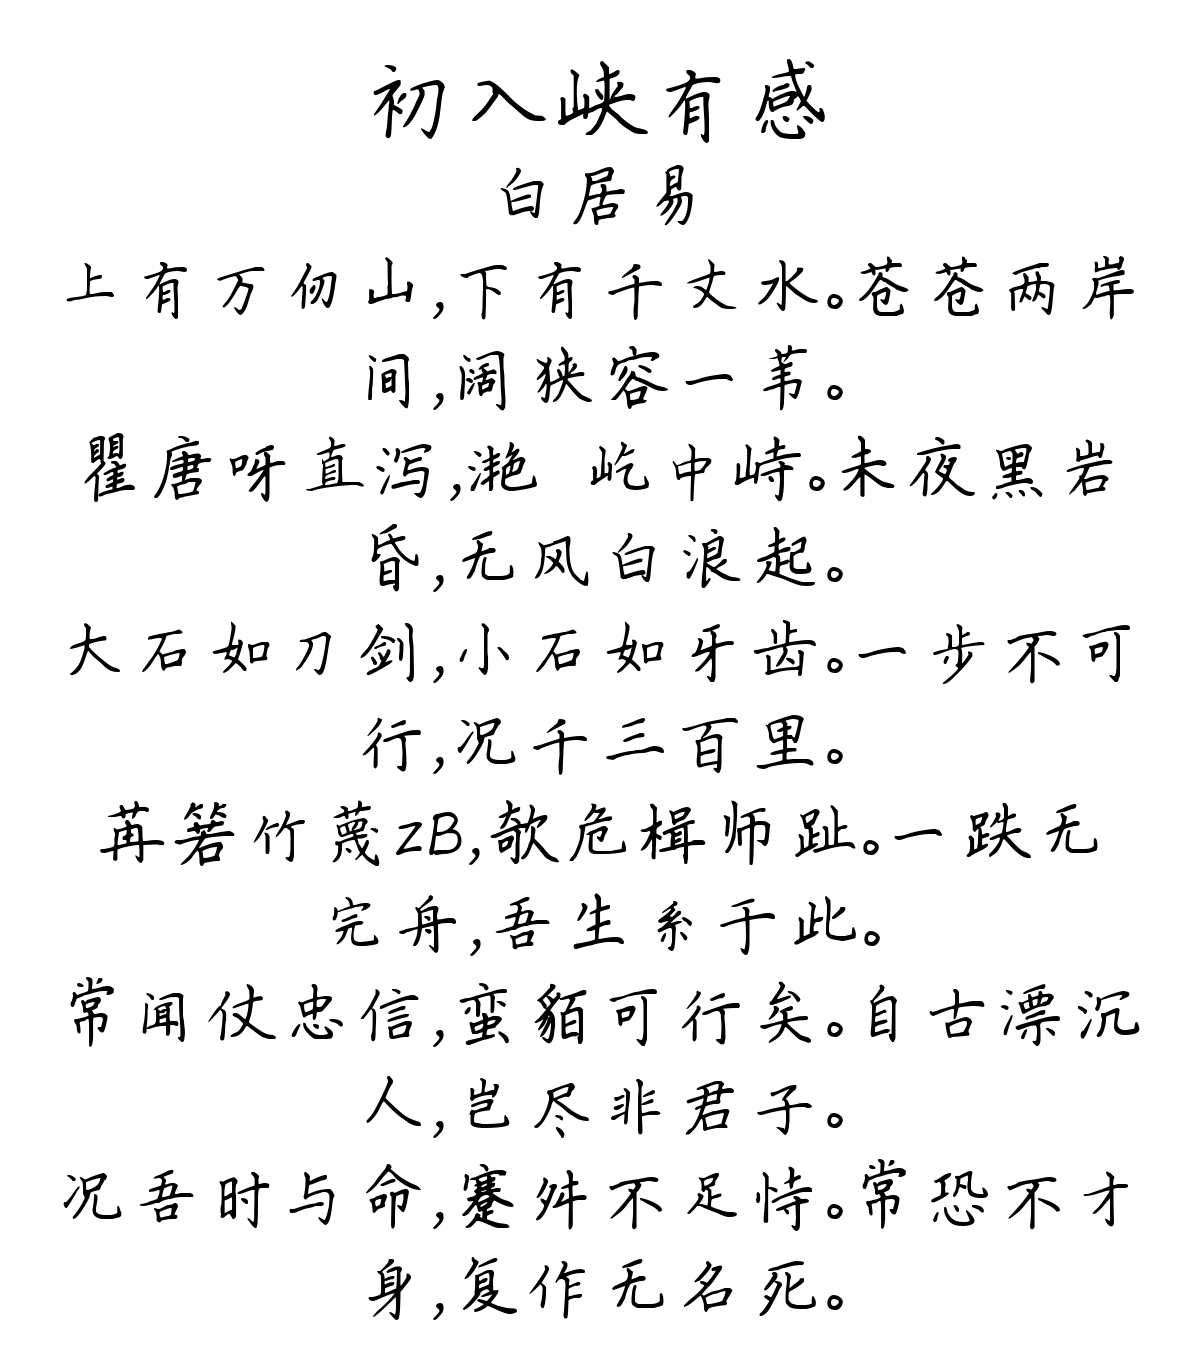 初入峡有感
白居易
上有万仞山,下有千丈水。苍苍两岸
间,阔狭容一苇。
瞿唐呀直泻,滟 屹中峙。未夜黑岩
昏,无风白浪起。
大石如刀剑,小石如牙齿。一步不可
行,况千三百里。
苒箬竹蔑zB,欹危楫师趾。一跌无
完舟,吾生系于此。
常闻仗忠信,蛮貊可行矣。自古漂沉
人,岂尽非君子。
况吾时与命,蹇舛不足恃。常恐不才
身,复作无名死。